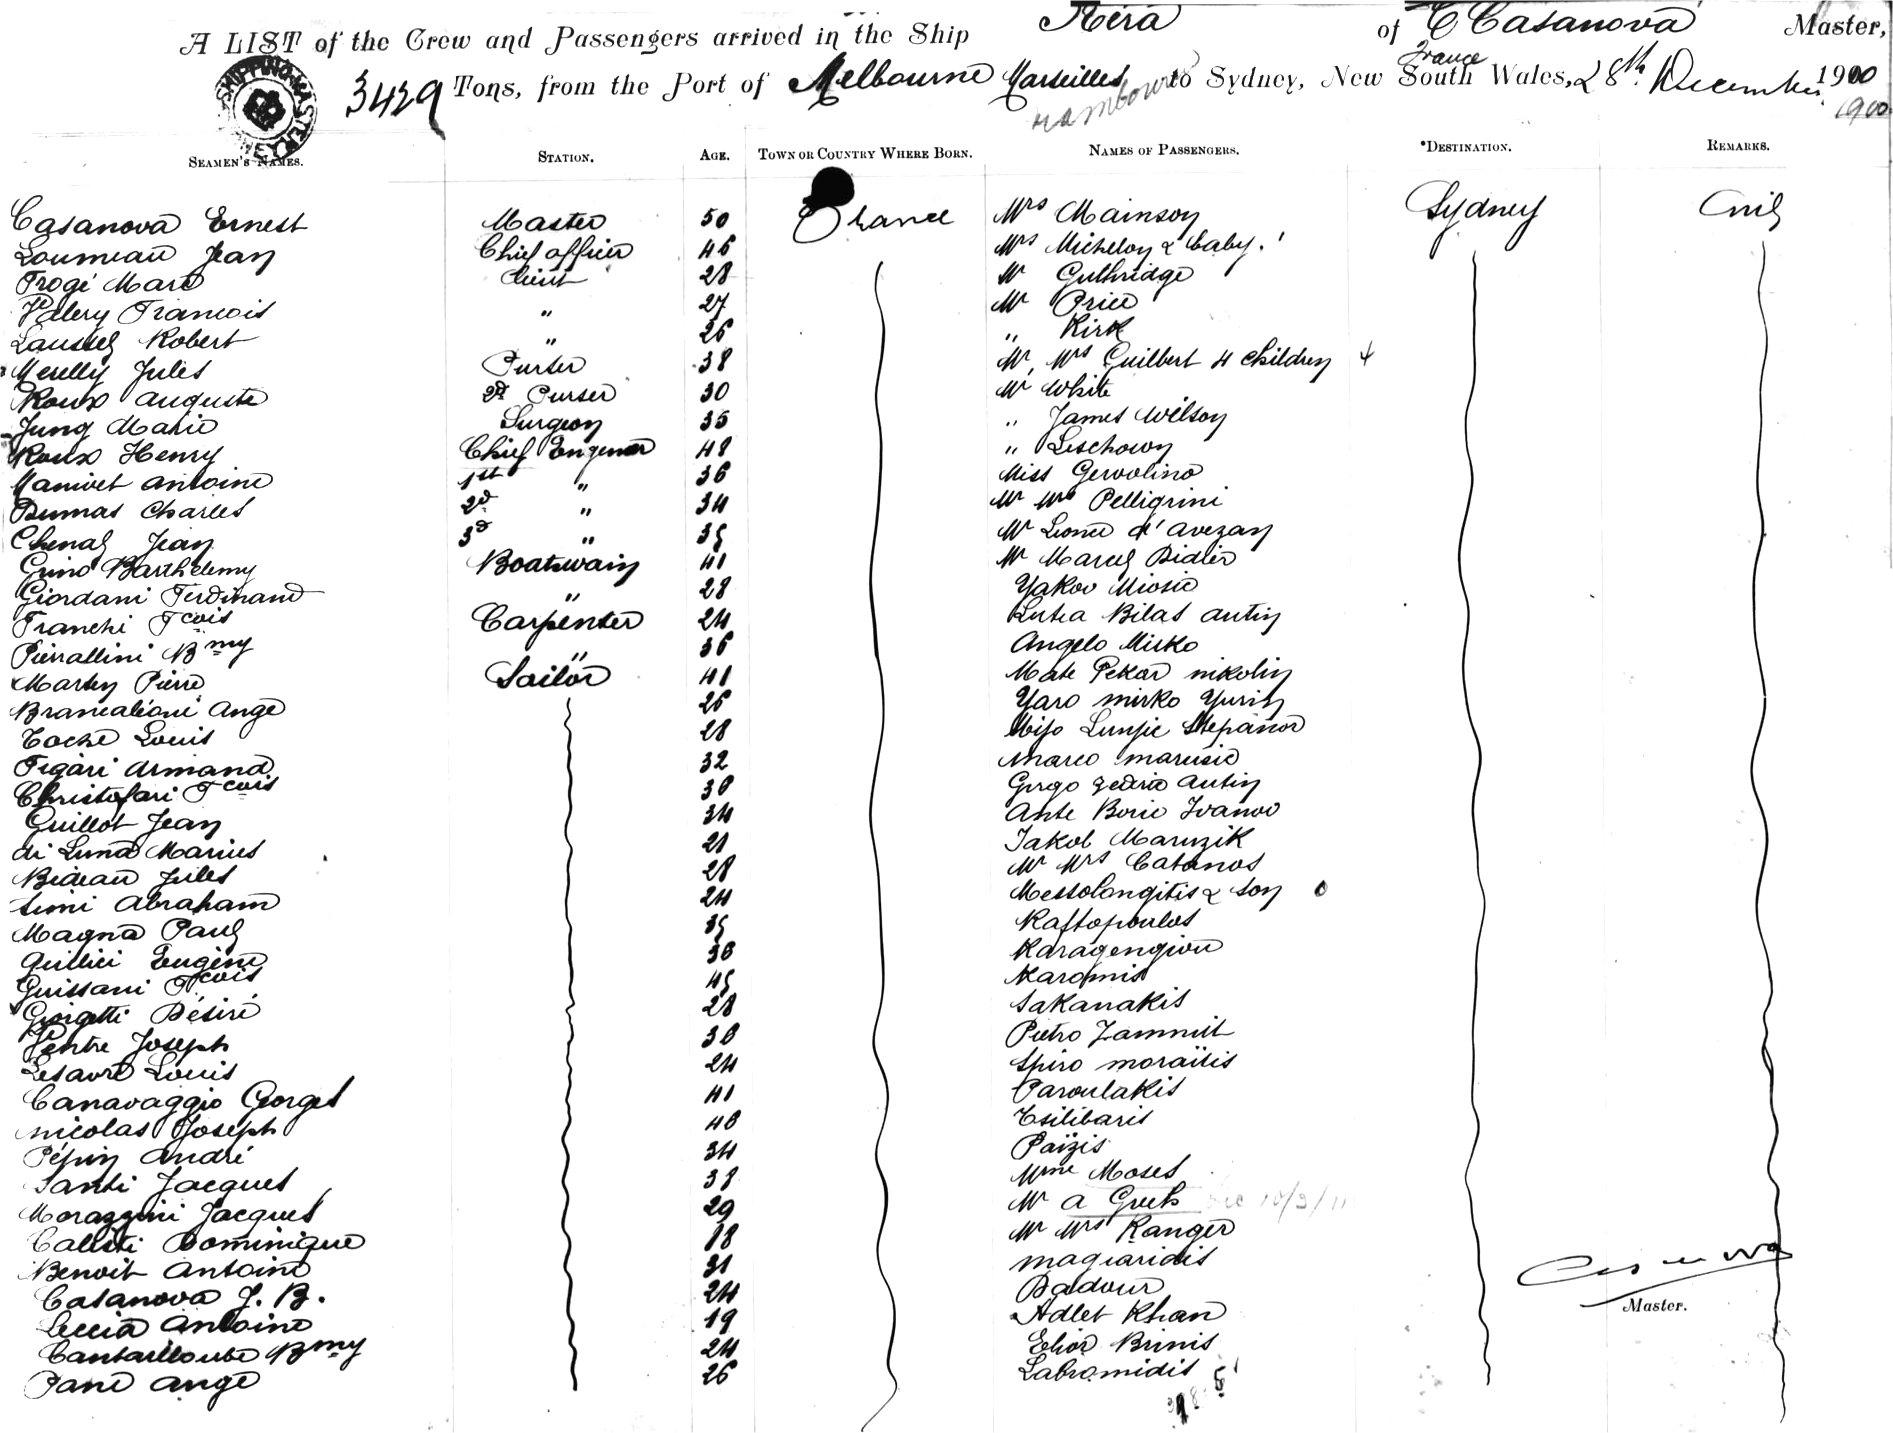 A LIST of the Crew and Passengers arrived in the Ship Nera of E Casanova Master,
3429 Tons, from the Port of Melbourne Marseilles to Sydney, New South Wales, 28th December 1900
France
1900
SHIPPING MASTER
SEAMEN'S NAMES. STATION. AGE. TOWN OR COUNTRY WHERE BORN. NAMES OF PASSENGERS. *DESTINATION. REMARKS.
Casanova Ernest Master 50 France Mrs Mainson Sydney
Loumeau Jean Chief officer 46 Mrs Micheloy & baby.
Trogé Marc Lieut 28 Mr Guthridge
Valery Francois " 27 Mr Price
Robert " 26 " Kirk
Jules Purser 38 Mr, Mrs Guilbert 4 children 4
Roux Auguste 2d Purser 30 Mr White
Jung Marie Surgeon 35 " James Wilson
Roux Henry Chief Engeneer 48 " Leschown
Manivet Antoine 1st " 36 Miss Gervolino
Dumas Charles 2d " 34 Mr Mrs Pelligrini
Chenal Jean 3d " 35 Mr Lionel d'Avezan
Barthelemy Boatswain 41 Mr Marcel Didier
Giordani Ferdinand " 28 Yakov Miosic
Franchi Fcois Carpenter 24 Lutra Bilas Antin
Pierallini Bmy " 36 Angelo Mirko
Marten Pierre Sailor 41 Mate Pekar Nikolin
Brancaleoni Ange 26 Yaro Mirko Yurin
Coche Louis 28 Mijo Lunjic Stepanov
Figari Armand 32 Marco Marusic
Christofari Fcois 30 Antin
Guillot Jean 34 Ante Boric Ivanov
di Luna Marius 21 Jakob Maruzik
Bideau Jules 28 Mr Mrs Catanos
Simi Abraham 24 Messolongitis & son
Magna Paul 35 Raftopoulos
Guilici Eugène 30 Karagengiou
Guissani Fcois 45
Giorgetti Désiré 28 Sakanakis
Ventre Joseph 30 Pietro Zammit
Lesavre Louis 24 Spiro Moraïtis
Canavaggio Georges 41 Paroulakis
Nicolas Joseph 40 Tsilibaris
Pépin André 34 Païzis
Santi Jacques 38 Mme Moses
Morazzini Jacques 29 Mr A Greek 10/3/11
Calisti Dominique 18 Mr Mrs Ranger
Benoit Antoine 31 Magiaridis
Casanova J. B. 24 Badour
Leccia Antoine 19 Adlet Khan Master.
Cantailloube Bmy 24 Elior Brinis
Pane Ange 26 Labromidis